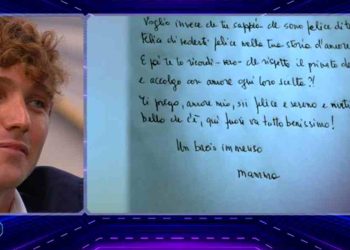 Voglio invece che tu sappia che sono felice di
Felice di vederti felice nella tua storia d'amore
E poi te lo ricordi - vero - che rispetto il privato
e accolgo con amore ogni loro scelta?!
Ti prego, amore mio, sii felice e sereno e
bello che c'è, qui fuori va tutto benissimo!
Un bacio immenso
Mamma